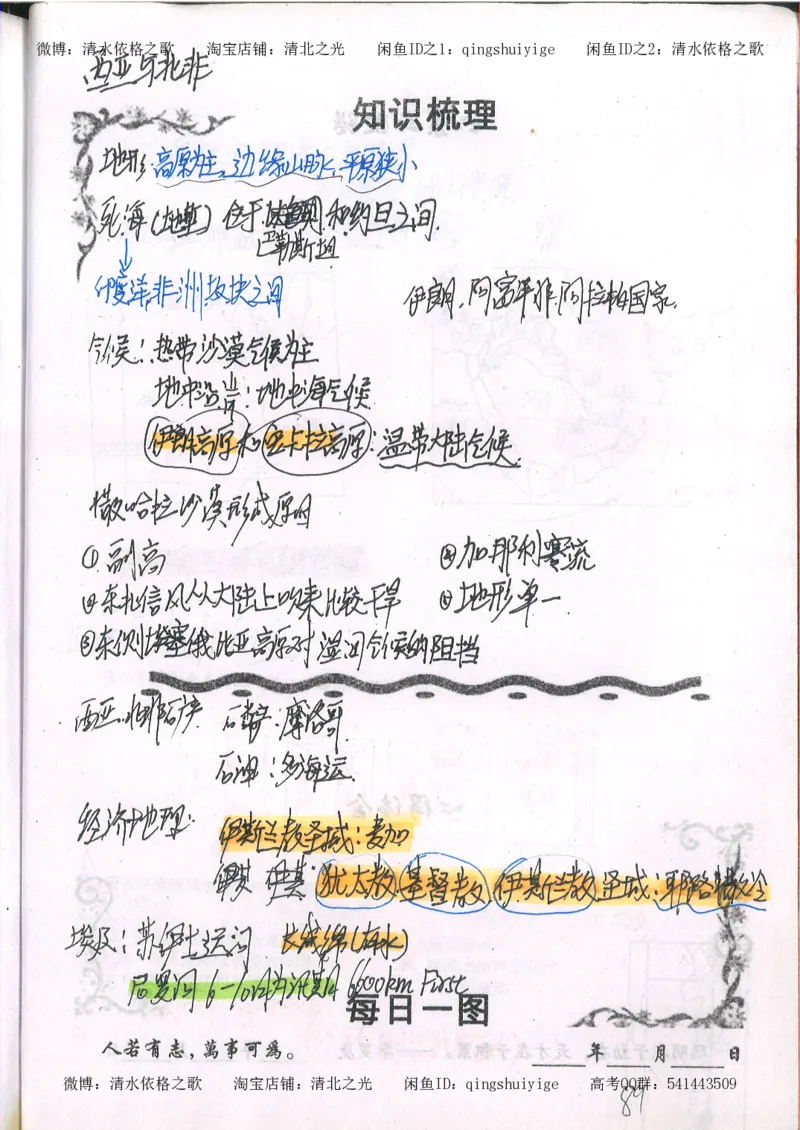 微博：清水依格之歌 淘宝店铺：清北之光 闲鱼ID之1：qingshuiyige 闲鱼ID之2：清水依格之歌
西亚与北非
知识梳理
地形：高原为主，边缘山脉，平原狭小
死海（地堑）位于 和约旦之间.
巴勒斯坦
印度洋，非洲板块之间
伊朗，阿富汗非阿拉伯国家.
气候：热带沙漠气候为主
地中沿岸：地中海气候
伊朗高原和 高原：温带大陆气候.
撒哈拉沙漠形成原因
①副高
④加那利寒流
②东北信风从大陆上吹来比较干旱
⑤地形单一.
③东侧埃塞俄比亚高原对湿润气候的阻挡
西亚.北非矿产 石 ：摩洛哥
石油：多海运.
经济地理：
伊斯兰教圣城：麦加
犹太教 基督教 伊斯兰教圣城：耶路撒冷
埃及：苏伊士运河 长绒棉
尼罗河6-10月为汛期 6600km First
每日一图
人若有志，萬事可為。
年 月 日
微博：清水依格之歌 淘宝店铺：清北之光 闲鱼ID：qingshuiyige 高考QQ群：541443509